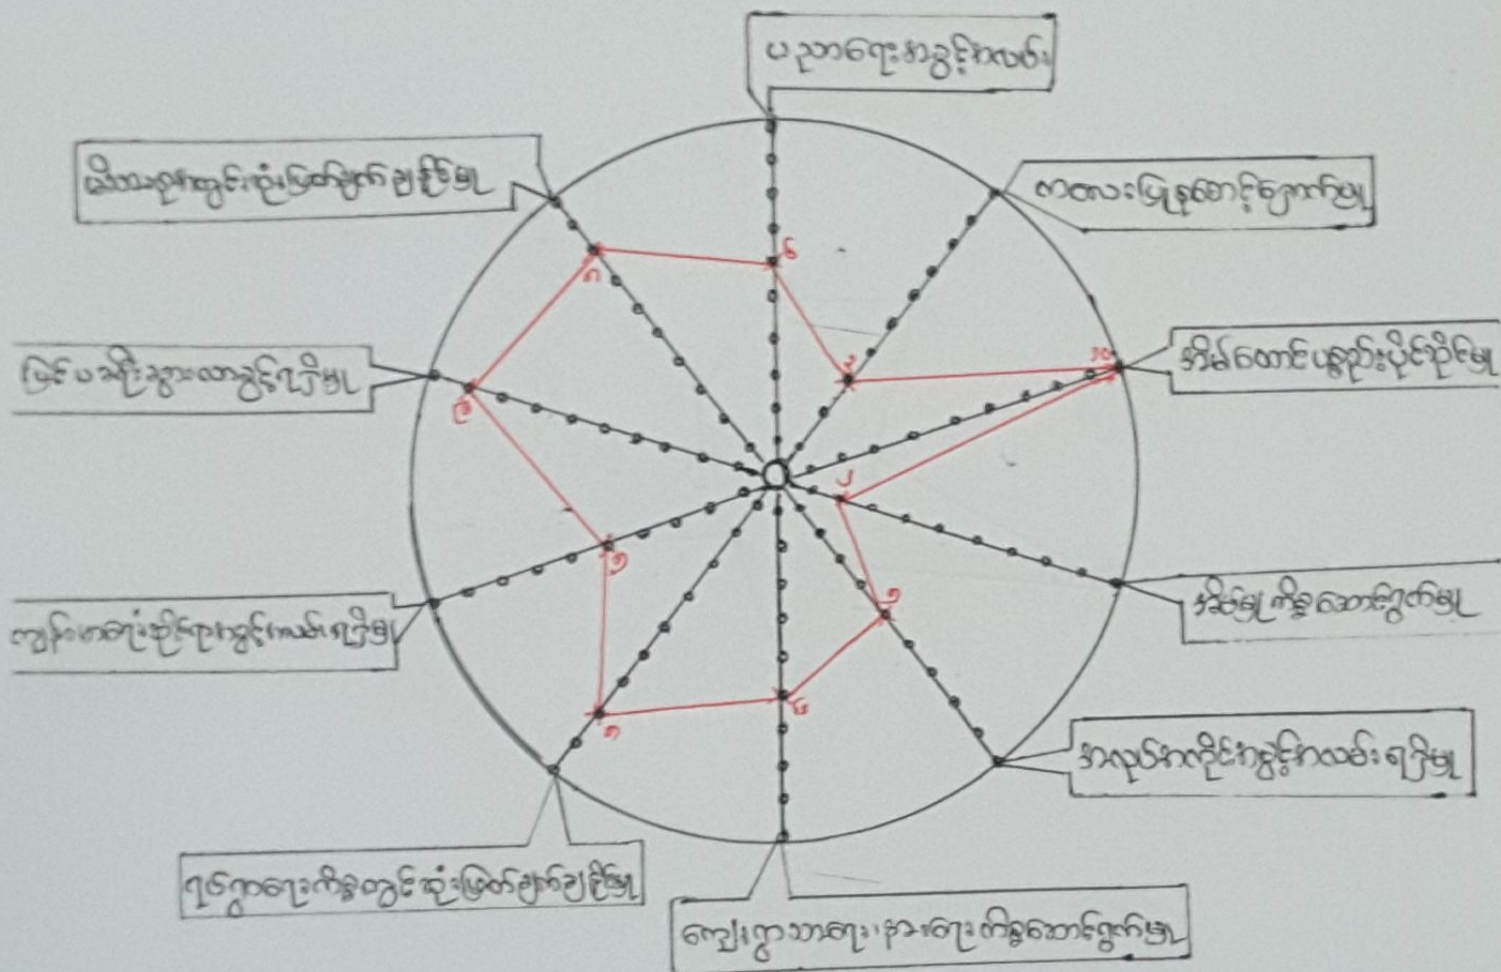 ပညာရေးအခွင့်အလမ်း
ကလေးပြုစုစောင့်ရှောက်မှု
အိမ်ထောင်ပစ္စည်းပိုင်ဆိုင်မှု
အိမ်မှုကိစ္စဆောင်ရွက်မှု
အလုပ်အကိုင်အခွင့်အလမ်းရရှိမှု
ကျေးရွာသာရေး၊နာရေးကိစ္စဆောင်ရွက်မှု
ရပ်ရွာရေးကိစ္စတွင်ဆုံးဖြတ်ချက်ချနိုင်မှု
ကျန်းမာရေးဆိုင်ရာအခွင့်အလမ်းရရှိမှု
ပြင်ပခရီးသွားလာခွင့်ရရှိမှု
မိသားစုအတွင်းဆုံးဖြတ်ချက်ချနိုင်မှု
၆
၃
၁၀
၂
၅
၆
၈
၅
၉
၈